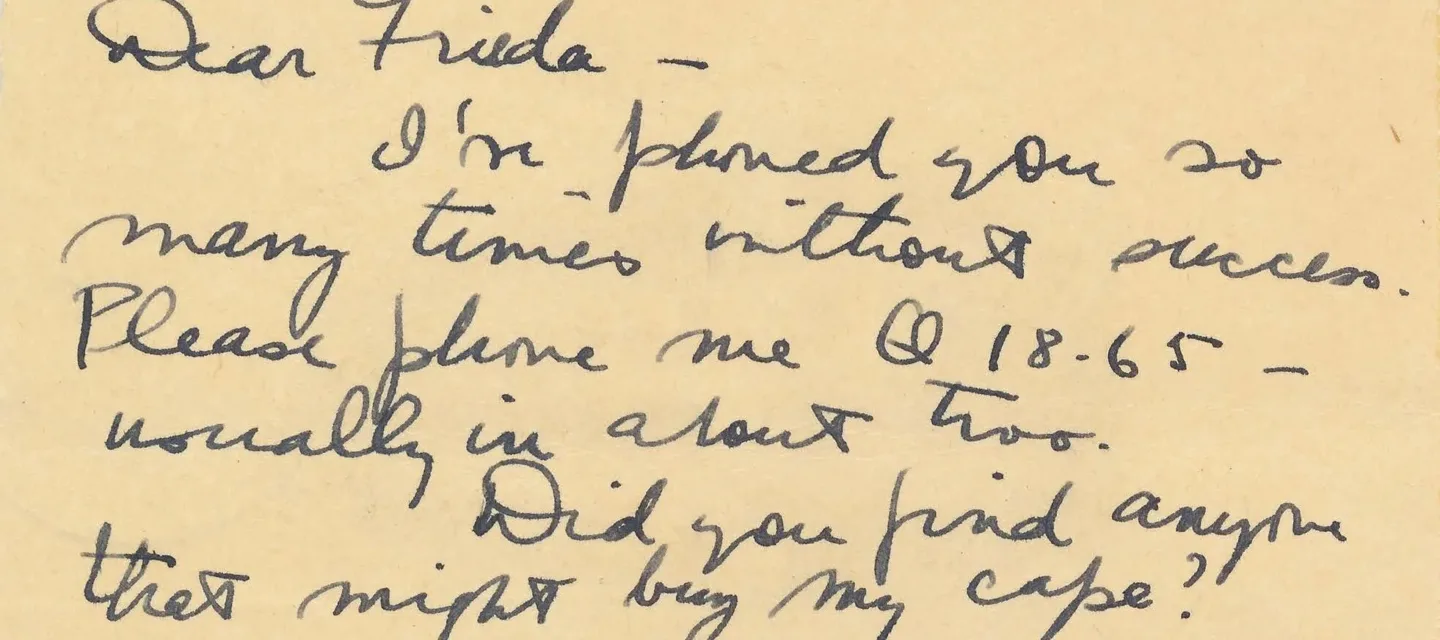 Dear Frieda —
I've phoned you so
many times without success.
Please phone me Q 18-65 —
usually in about two.
Did you find anyone
that might buy my cape?